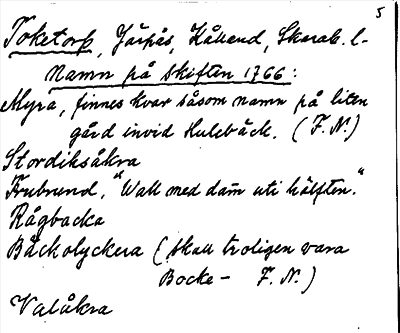 5
Toketorp, Järpås, Kålland, Skarab. l.
Namn på skiften 1766:
Myra, finnes kvar såsom namn på liten
gård invid Hulebäck. (F. N.)
Stordiksåkra
"Wall med dam uti hälften."
Rågbacka
Bäckolyckera (skall troligen vara
Bocke- F. N.)
Valåkra